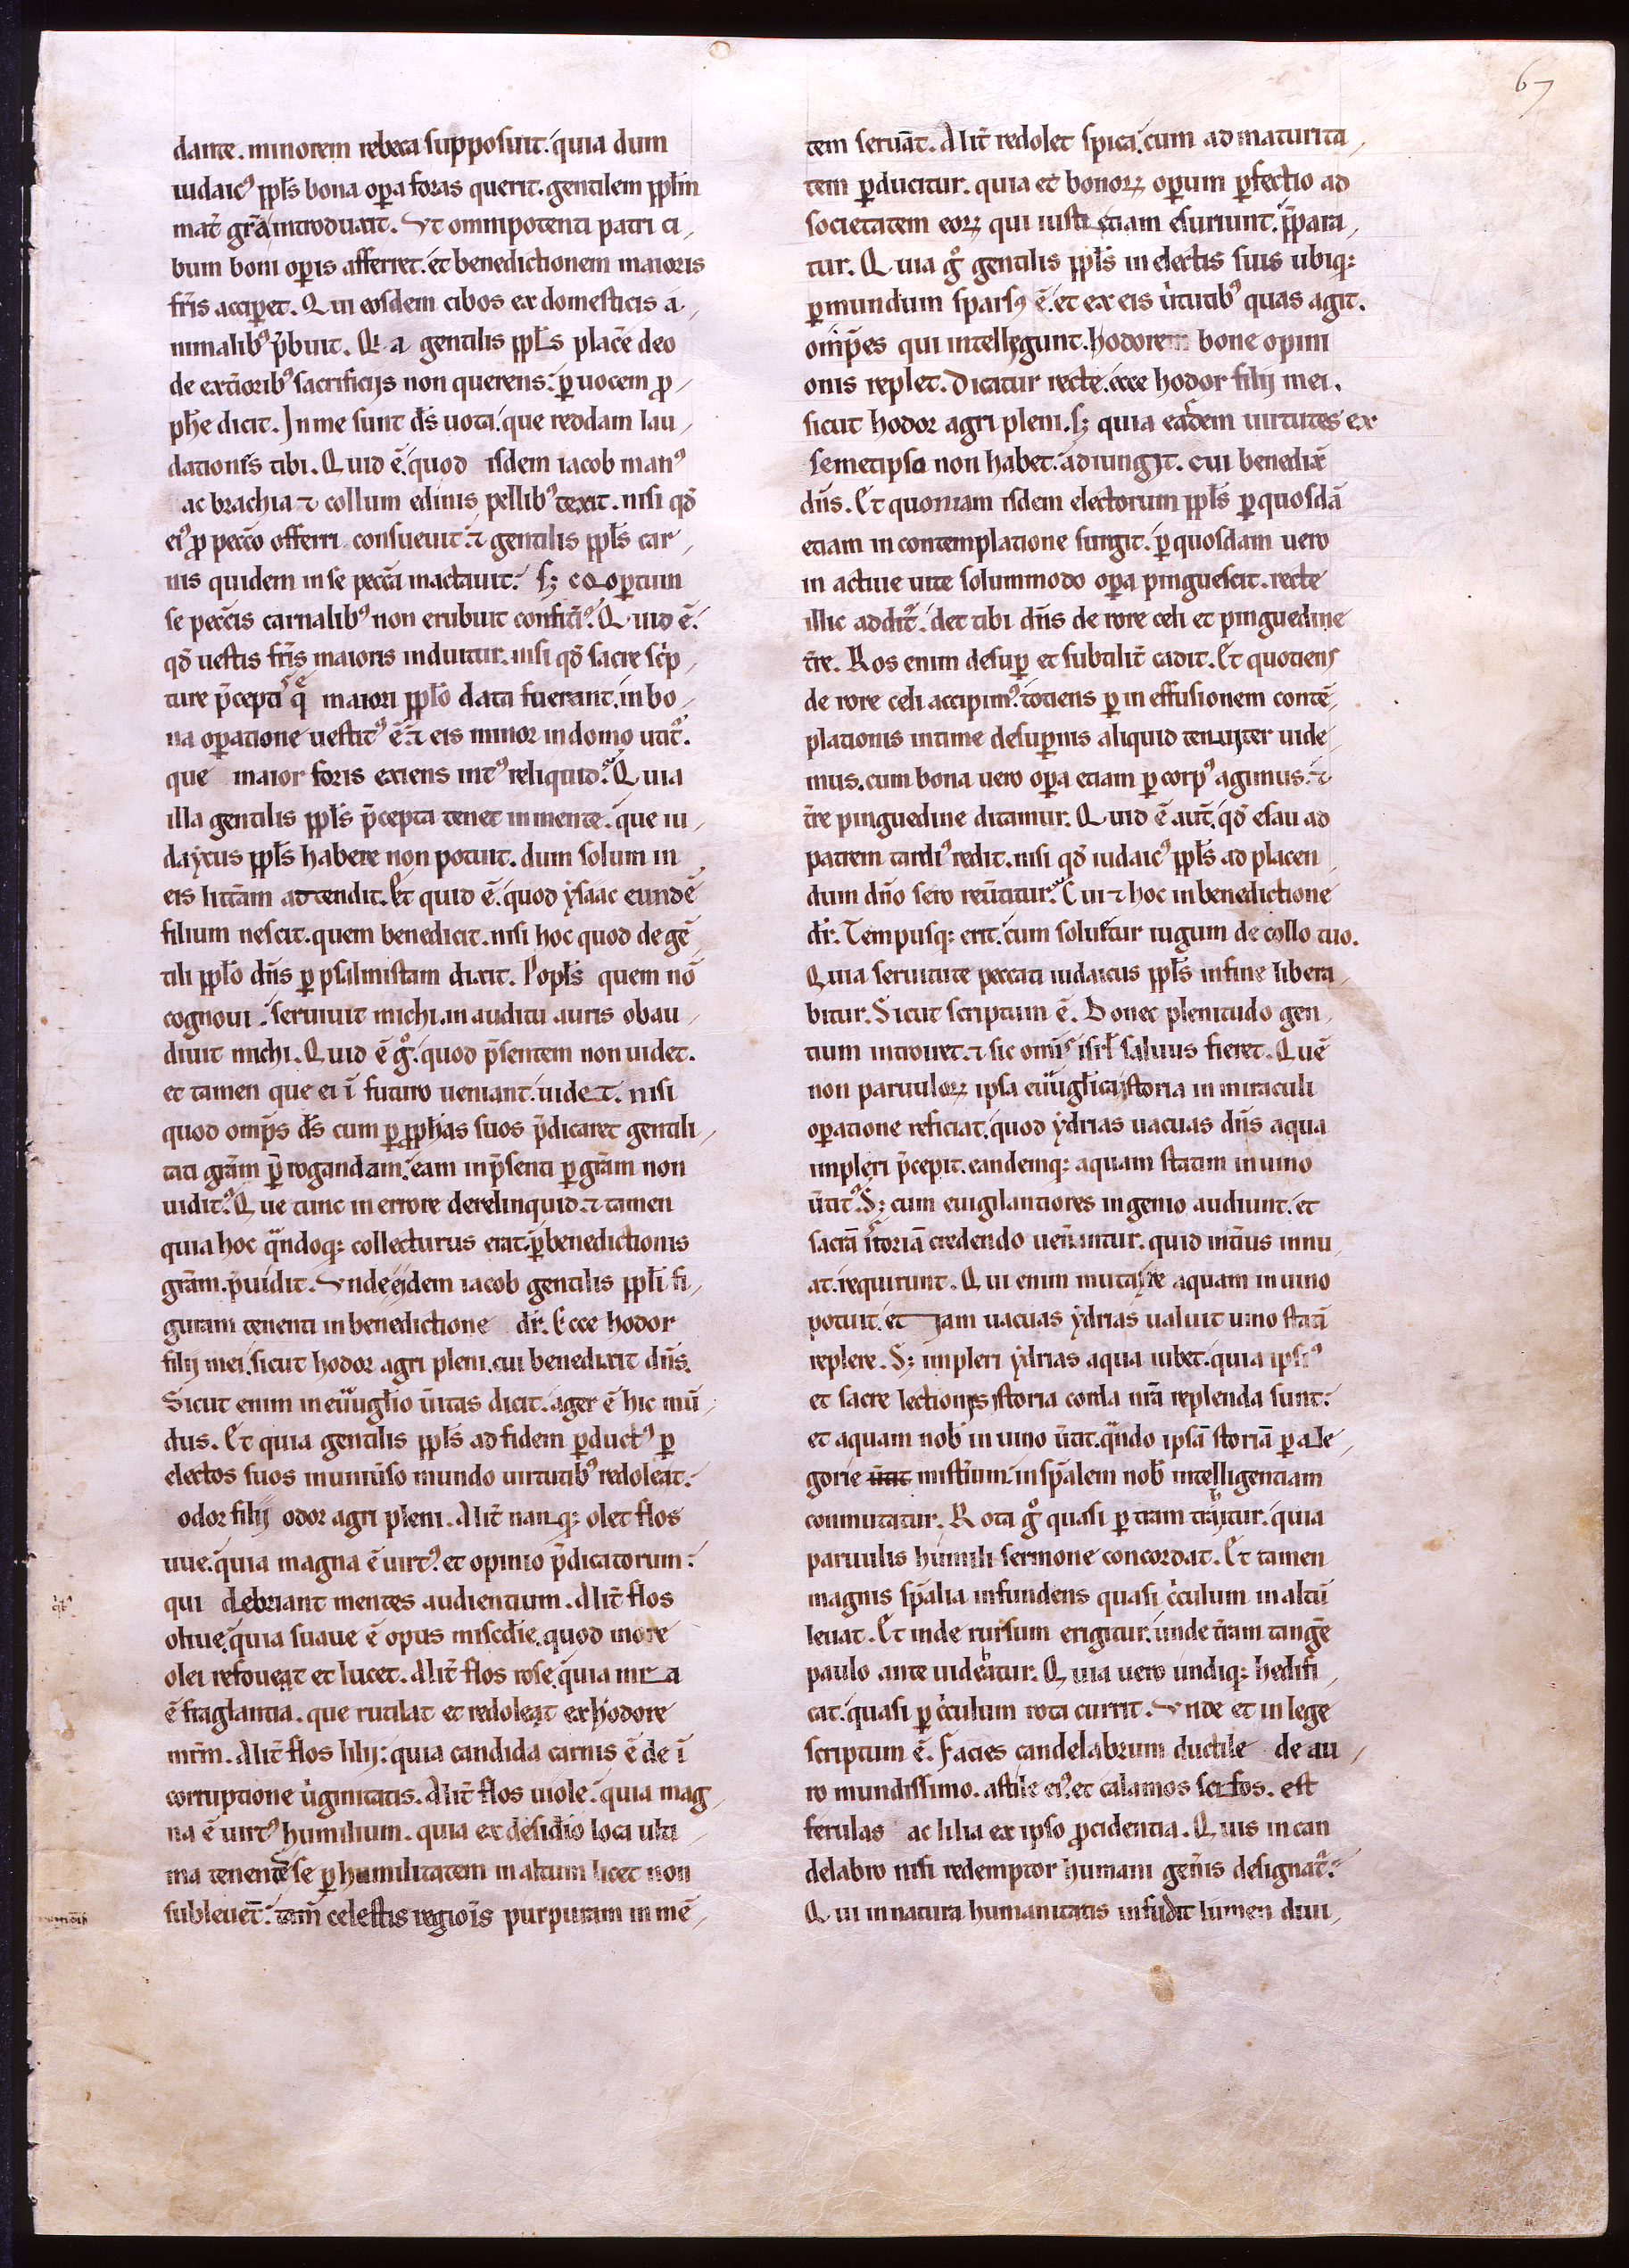 67
dante. minorem rebeca supposuit. quia dum
iudaic⁹ ppl̄s bona oꝑa foras querit. gentilem ppl̄m
mat̄ gr̄a introduxit. Vt omnipotenti patri ci
bum boni oꝑis afferret. et benedictionem maioris
fr̄is acciꝑet. Qui eosdem cibos ex domesticis a
nimalib⁹ p̄buit. Q̄a gentilis ppl̄s placē deo
de ext̄iorib⁹ sacrificijs non querens. ꝑ uocem ꝓ
ph̄e dicit. In me sunt ds̄ uota. que reddam lau
dationes tibi. Quid ē. quod isdem iacob man⁹
ac brachia ⁊ collum edinis pellib⁹ texit. nisi qd̄
ei⁹ ꝓ pecc̄o offerri consueuit. ⁊ gentilis ppl̄s car
nis quidem in se pecc̄a mactauit. sꝫ coopertum
se pecc̄is carnalib⁹ non erubuit confit̄i. Quid ē.
qd̄ uestis fr̄is maioris induitur. nisi qd̄ sacre sc̄p
ture p̄ceptis q̄ maiori ppl̄o data fuerant. in bo
na oꝑatione uestit⁹ ē. ⁊ eis minor in domo utit᷑.
que maior foris exiens int⁹ reliquid. Quia
illa gentilis ppl̄s p̄cepta tenet in mente. que iu
daycus ppl̄s habere non potuit. dum solum in
eis litt̄am adtendit. Et quid ē. quod ẏsaac eundē
filium nescit. quem benedicit. nisi hoc quod de gē
tili ppl̄o dn̄s ꝑ psalmistam dixit. Popl̄s quem nō
cognoui. seruiuit michi. in auditu auris obau
diuit michi. Quid ē g̊. quod p̄sentem non uidet.
et tamen que ei ī futuro ueniant. uidet. nisi
quod omp̄s ds̄ cum ꝑ ꝓph̄as suos p̄dicaret gentili
tati gr̄am p̄rogandam. eam in p̄senti ꝑ gr̄am non
uidit. Que tunc in errore derelinquid. ⁊ tamen
quia hoc qn̄doqꝫ collecturus erat. ꝑ benedictionis
gr̄am. p̄uidit. Vnde eidem iacob gentilis ppl̄i fi
guram tenenti in benedictione dr̄. Ecce hodor
filij mei. sicut hodor agri pleni. cui benedixit dn̄s.
Sicut enim in euu̅gl̄io ūitas dicit. ager ē hic mū
dus. Et quia gentilis ppl̄s ad fidem ꝑduct⁹ ꝑ
electos suos in uniūso mundo uirtutib⁹ redoleat.
odor filij odor agri pleni. Alit̄ nanqꝫ olet flos
uue. quia magna ē uirt⁹. et opinio p̄dicatorum.
qui debriant mentes audientium. Alit̄ flos
oliue. quia suaue ē opus misc̄die. quod more
olei refoueat et lucet. Alit̄ flos rose. quia mira
ē fraglantia. que rutilat et redoleat ex hodore
mr̄m. Alit̄ flos lilij. quia candida carnis ē de ī
corruptione ūginitatis. Alit̄ flos uiole. quia mag
na ē uirt⁹ humilium. quia ex desid̄io loca ulti
ma tenentes se ꝑ humilitatem in altum licet non
subleuēt. tam̄ celestis regiōis purpuram in mē
tem seruāt. Alit̄ redolet spica. cum ad maturita
tem ꝑducitur. quia et bonoꝝ oꝑum ꝑfectio ad
societatem eoꝝ qui iusti etiam esuriunt. p̄para
tur. Quia g̊ gentilis ppl̄s in electis suis ubiqꝫ
ꝑ mundum spars⁹ ē. et ex eis ūtutib⁹ quas agit.
omp̄es qui intellegunt. hodorem bone opini
onis replet. Dicatur recte. ecce hodor filij mei.
sicut hodor agri pleni. sꝫ quia easdem uirtutes ex
semetipso non habet. adiungit. cui benedix̄
dn̄s. Et quoniam isdem electorum ppl̄s ꝑ quosdā
etiam in contemplatione surgit. ꝑ quosdam uero
in actiue uite solummodo oꝑa pinguescit. recte
illic addit᷑. det tibi dn̄s de rore celi et pinguedine
t̄re. Ros enim desuꝑ et subtilit̄ cadit. Et quotiens
de rore celi accipim⁹. totiens ꝑ in effusionem contē
plationis intime desuꝑnis aliquid tenuiter uide
mus. cum bona uero oꝑa etiam ꝑ corp⁹ agimus. ⁊
t̄re pinguedine ditamur. Quid ē aut̄. qd̄ esau ad
patrem tardi⁹ redit. nisi qd̄ iudaic⁹ ppl̄s ad placen
dum dn̄o sero reūtitur. Cui ⁊ hoc in benedictione
dr̄. Tempusqꝫ erit. cum soluetur iugum de collo tuo.
Quia seruitute peccati iudaicus ppl̄s in fine libera
bitur. Sicut scriptum ē. Donec plenitudo gen
tium introiret. ⁊ sic omis isrl̄ saluus fieret. Quē
non paruuloꝝ ipsa euu̅gl̄ica istoria in miraculi
oꝑatione reficiat. quod ẏdrias uacuas dn̄s aqua
impleri p̄cepit. eandemqꝫ aquam statim in uino
ūtit. Sꝫ cum euigilantiores ingenio audiunt. et
sacrā istoriā credendo uen̄antur. quid int̄ius innu
at. requirunt. Qui enim mutare aquam in uino
potuit. etiam uacuas ẏdrias ualuit uino statī
replere. Sꝫ impleri ẏdrias aqua iubet. quia ipsi⁹
et sacre lectionis istoria corda nr̄a replenda sunt.
et aquam nob̄ in uino ūtit. qn̄do ipsā storiā ꝑ ale
gorie mist̄ium in sp̄alem nob̄ intelligentiam
conmutatur. Rota g̊ quasi ꝑ t̄ram trahitur. quia
paruulis humili sermone concordat. Et tamen
magnis sp̄alia infundens quasi c̄culum in altū
leuat. Et inde rursum erigitur. unde t̄ram tangē
paulo ante uidebatur. Quia uero undiqꝫ hedifi
cat. quasi ꝑ c̄culum rota currit. Vnde et in lege
scriptum ē. Facies candelabrum ductile de au
ro mundissimo. astile ei⁹. et calamos scifos. est
ferulas ac lilia ex ipso ꝓcidentia. Quis in can
delabro nisi redemptor humani gen̄is designat᷑.
Qui in natura humanitatis infudit lumen diui